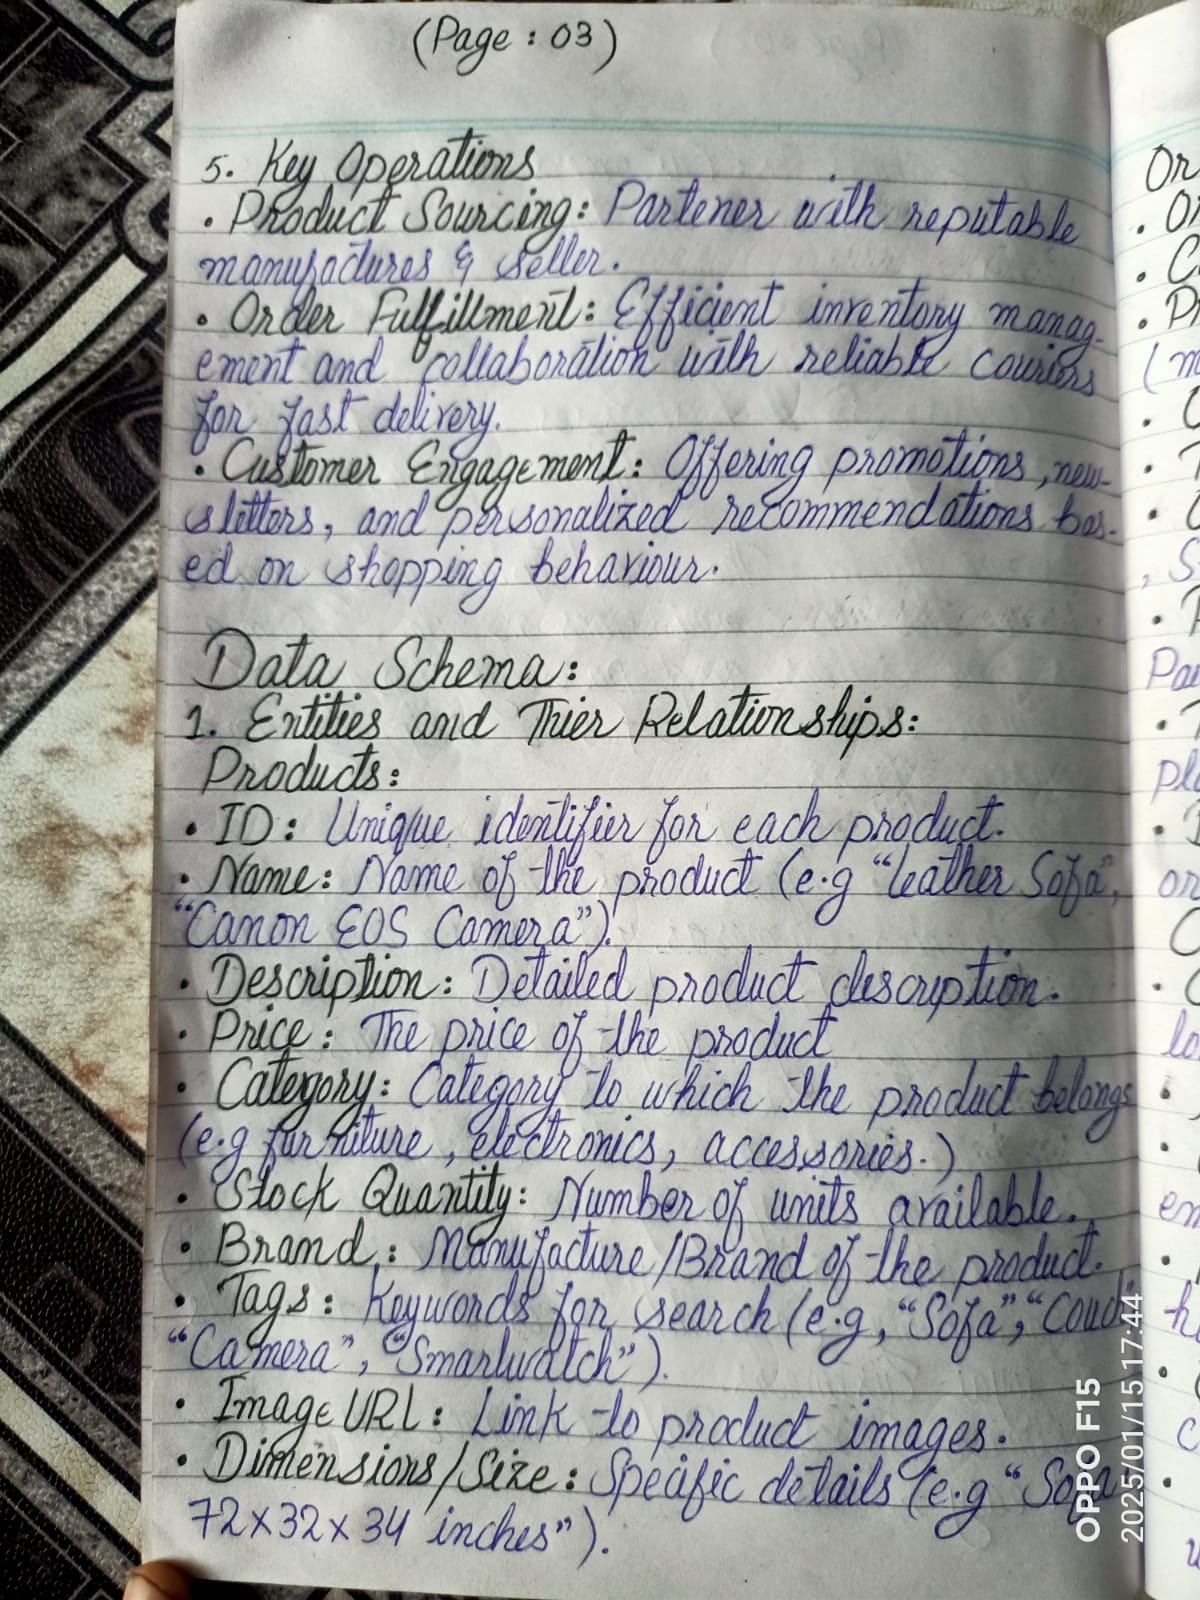 (Page : 03)
5. Key Operations
• Product Sourcing: Partener with reputable
manufactures & seller.
• Order Fulfillment: Efficient inventory manag-
ement and collaboration with reliable couriers
for fast delivery.
• Customer Engagement: Offering promotions, new-
sletters, and personalized recommendations bas-
ed on shopping behaviour.
Data Schema:
1. Entities and Thier Relationships:
Products:
• ID: Unique identifier for each product.
• Name: Name of the product (e.g "Leather Sofa",
"Canon EOS Camera").
• Description: Detailed product description.
• Price: The price of the product
• Category: Category to which the product belongs
(e.g furniture, electronics, accessories.)
• Stock Quantity: Number of units available.
• Brand: Manufacture/Brand of the product.
• Tags: Keywords for search (e.g, "Sofa",
"Camera", "Smartwatch").
• Image URL: Link to product images.
• Dimensions/Size: Specific details (e.g "Sofa
72x32x34 inches").
OPPO F15
2025/01/15 17:44